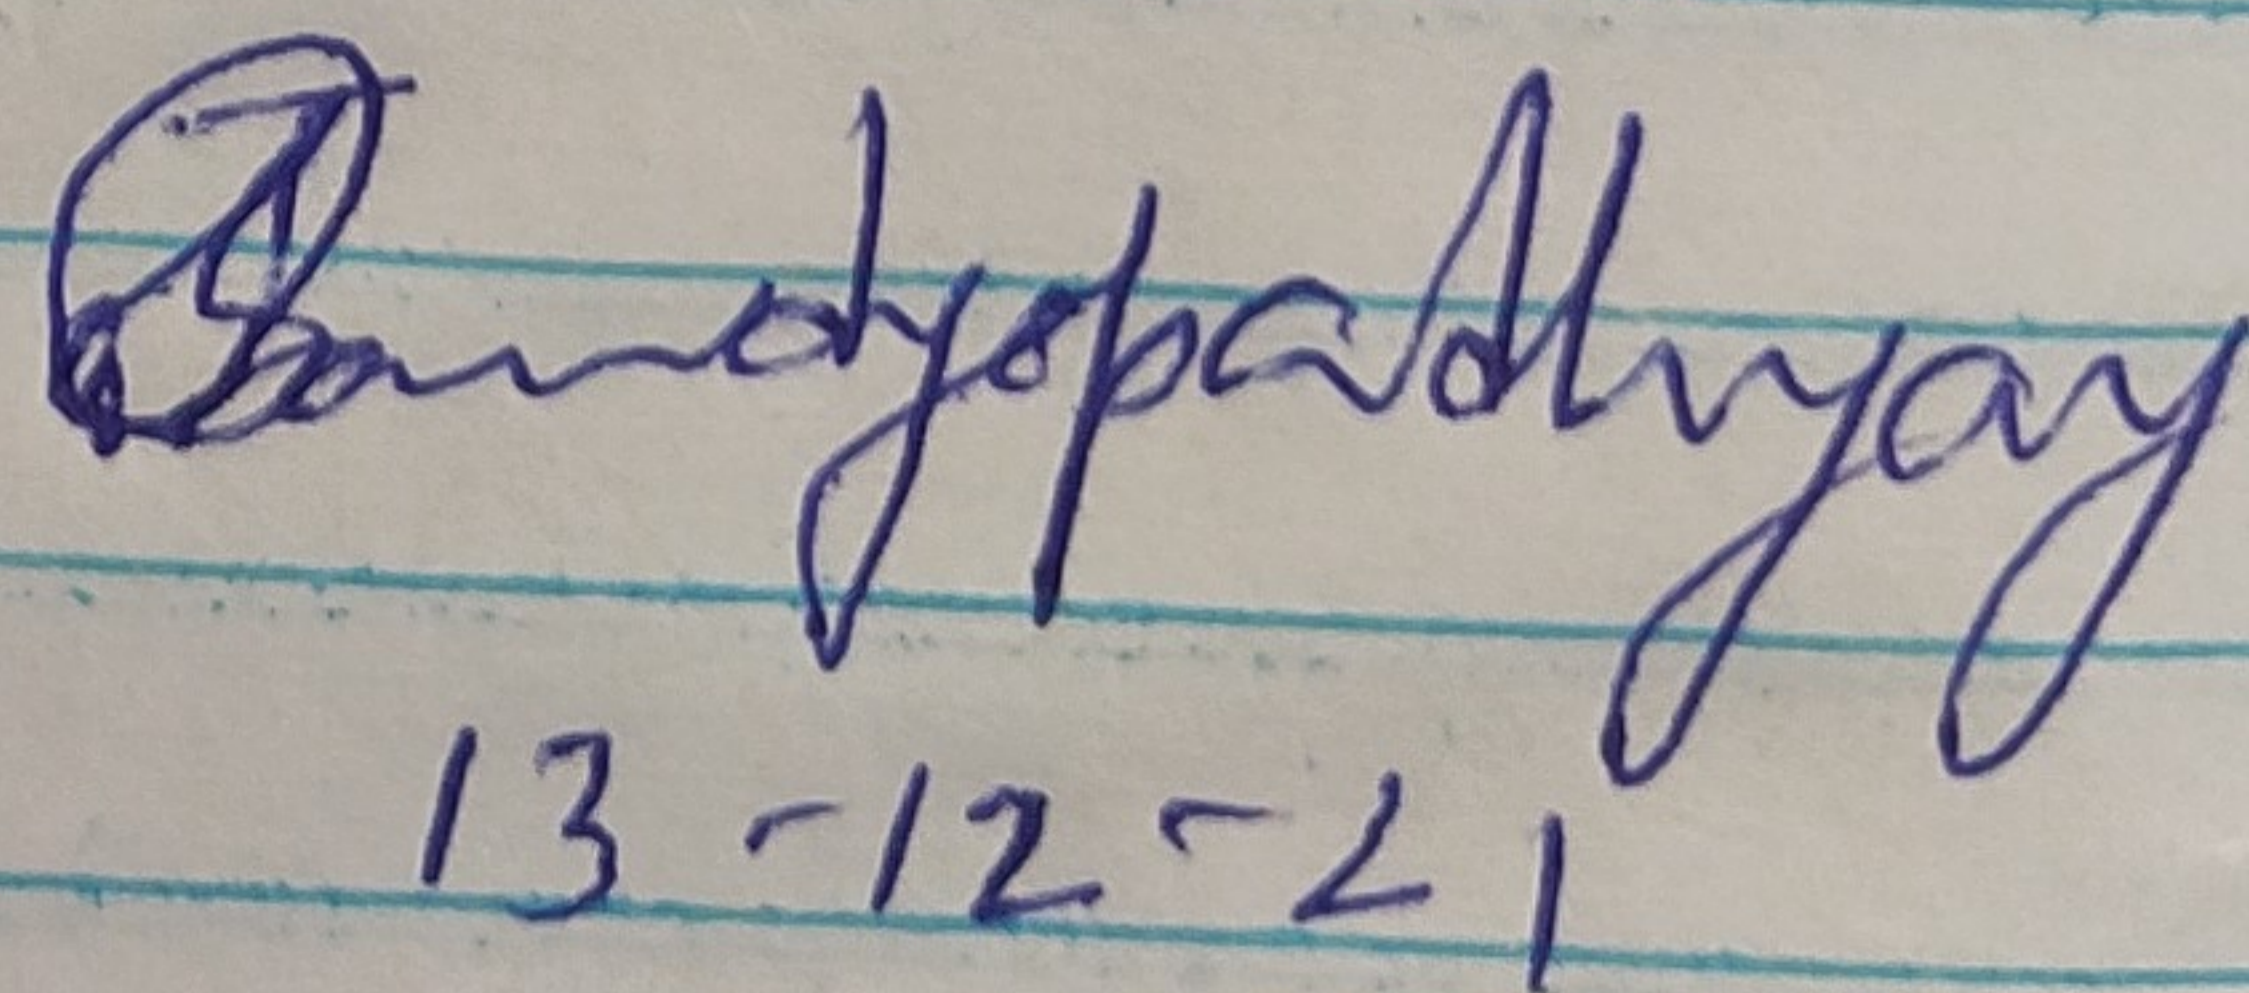 Bandyopadhyay
13-12-21